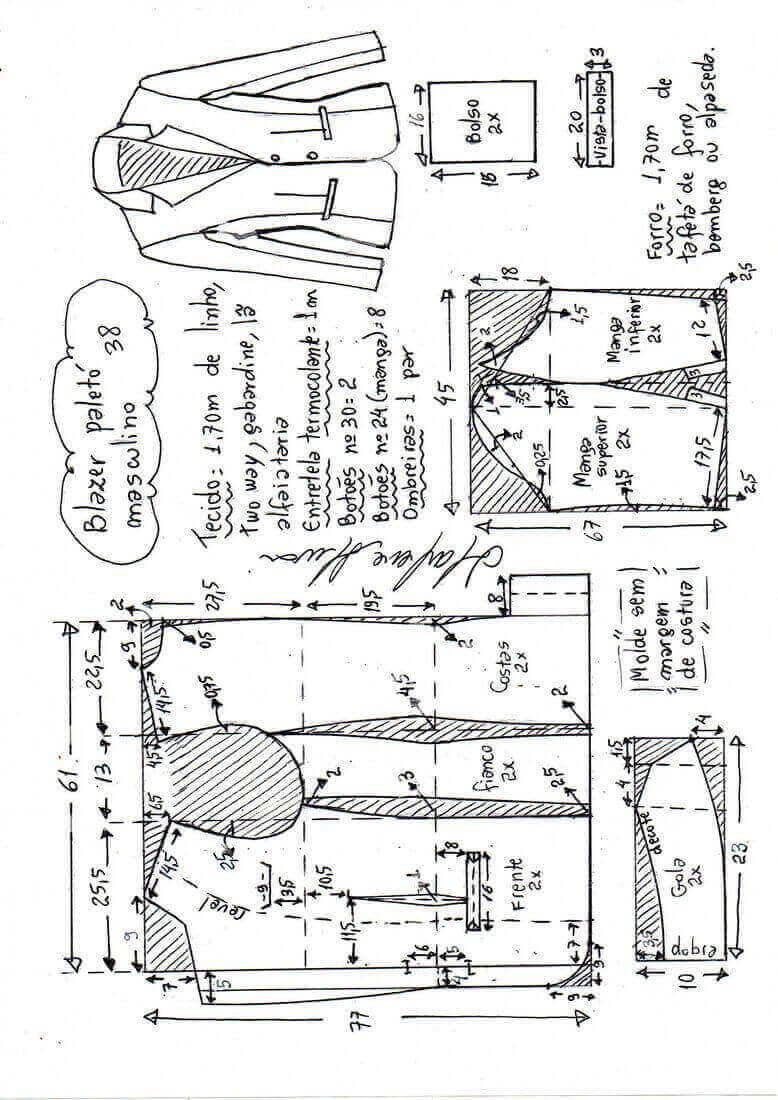 Blazer paletó
masculino 38
Tecido = 1,70m de linho,
Two way, gabardine, lã
alfaiataria
Entretela termocolante = 1m
Botões nº 30 = 2
Botões nº 24 (manga) = 8
Ombreiras = 1 par
16
15
Bolso
2x
20
3
Vista-bolso
Forro = 1,70m de
tafetá de forro,
bemberg ou alpaseda.
45
18
67
2
2
1
3,5
2,5
0,25
1,5
1,5
Manga
superior
2x
Manga
inferior
2x
17,5
3
3
12
2,5
2,5
61
25,5
13
22,5
9
9
2
27,5
19,5
0,5
14,5
14,5
0,75
4,5
2,5
2,5
7
5
77
revel
9
3,5
10,5
11,5
1
8
16
6
5
4
7
9
9
2
3
2,5
4,5
2
2
8
Frente
2x
Fianco
2x
Costas
2x
"Molde sem
margem
de costura"
1,5
4
4
decote
Gola
2x
dobra
3,5
10
23